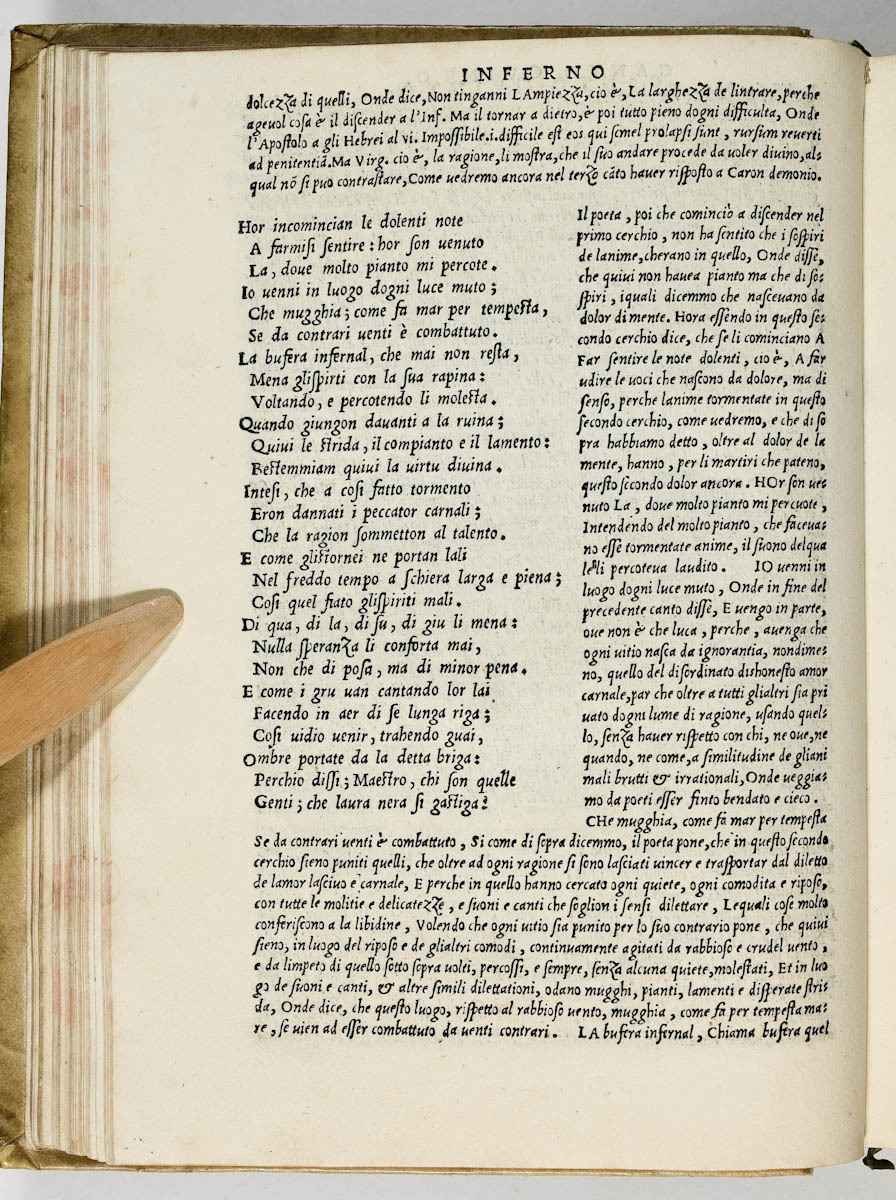 INFERNO
dolcezza di quelli, Onde dice, Non tinganni LAmpiezza, cio è, La larghezza de lintrare, perche
ageuol cosa è il discender a l'Inf. Ma il tornar a dietro, è poi tutto pieno dogni difficulta, Onde
l'Apostolo a gli Hebrei al vi. Impossibile.i.difficile est eos qui semel prolapsi sunt, rursum reuerti
ad penitentiã. Ma Virg. cio è, la ragione, li mostra, che il suo andare procede da uoler diuino, al⸗
qual nõ si puo contrastare, Come uedremo ancora nel terzo cãto hauer risposto a Caron demonio.
Hor incomincian le dolenti note
A farmisi sentire: hor son uenuto
La, doue molto pianto mi percote.
Io uenni in luogo dogni luce muto;
Che mugghia; come fa mar per tempesta,
Se da contrari uenti è combattuto.
La bufera infernal, che mai non resta,
Mena glispirti con la sua rapina:
Voltando, e percotendo li molesta.
Quando giungon dauanti a la ruina;
Quiui le strida, il compianto e il lamento:
Bestemmiam quiui la uirtu diuina.
Intesi, che a cosi fatto tormento
Eron dannati i peccator carnali;
Che la ragion sommetton al talento.
E come glistornei ne portan lali
Nel freddo tempo a schiera larga e piena;
Cosi quel fiato glispiriti mali.
Di qua, di la, di su, di giu li mena:
Nulla speranza li conforta mai,
Non che di posa, ma di minor pena.
E come i gru uan cantando lor lai
Facendo in aer di se lunga riga;
Cosi uidio uenir, trahendo guai,
Ombre portate da la detta briga:
Perchio dissi; Maestro, chi son quelle
Genti; che laura nera si gastiga?
Il poeta, poi che cominciò a discender nel
primo cerchio, non ha sentito che i sospiri
de lanime, cherano in quello, Onde disse,
che quiui non hauea pianto ma che di so⸗
spiri, iquali dicemmo che nasceuano da
dolor di mente. Hora essendo in questo se⸗
condo cerchio dice, che se li cominciano A
Far sentire le note dolenti, cio è, A far
udire le uoci che nascono da dolore, ma di
senso, perche lanime tormentate in questo
secondo cerchio, come uedremo, e che di so
pra habbiamo detto, oltre al dolor de la
mente, hanno, per li martiri che pateno,
questo secondo dolor ancora. HOr son ue⸗
nuto La, doue molto pianto mi percuote,
Intendendo del molto pianto, che faceua⸗
no esse tormentate anime, il suono delqua
le li percoteua laudito. IO uenni in
luogo dogni luce muto, Onde in fine del
precedente canto disse, E uengo in parte,
oue non è che luca, perche, auenga che
ogni uitio nasca da ignorantia, nondime⸗
no, quello del disordinato dishonesto amor
carnale, par che oltre a tutti glialtri sia pri
uato dogni lume di ragione, usando quel⸗
lo, senza hauer rispetto con chi, ne oue, ne
quando, ne come, a similitudine de gliani
mali brutti & irrationali, Onde ueggia⸗
mo da poeti esser finto bendato e cieco.
CHe mugghia, come fa mar per tempesta
Se da contrari uenti è combattuto, Si come di sopra dicemmo, il poeta pone, che in questo secondo
cerchio sieno puniti quelli, che oltre ad ogni ragione si sono lasciati uincer e trasportar dal diletto
de lamor lasciuo e carnale, E perche in quello hanno cercato ogni quiete, ogni comodita e riposo,
con tutte le molitie e delicatezze, e suoni e canti che soglion i sensi dilettare, Lequali cose molto
conferiscono a la libidine, Volendo che ogni uitio sia punito per lo suo contrario pone, che quiui
sieno, in luogo del riposo e de glialtri comodi, continuamente agitati da rabbioso e crudel uento,
e da limpeto di quello sotto sopra uolti, percossi, e sempre, senza alcuna quiete, molestati, Et in luo
go de suoni e canti, & altre simili dilettationi, odano mugghi, pianti, lamenti e disperate stri⸗
da, Onde dice, che questo luogo, rispetto al rabbioso uento, mugghia, come fa per tempesta ma⸗
re, se uien ad esser combattuto da uenti contrari. LA bufera infernal, Chiama bufera quel